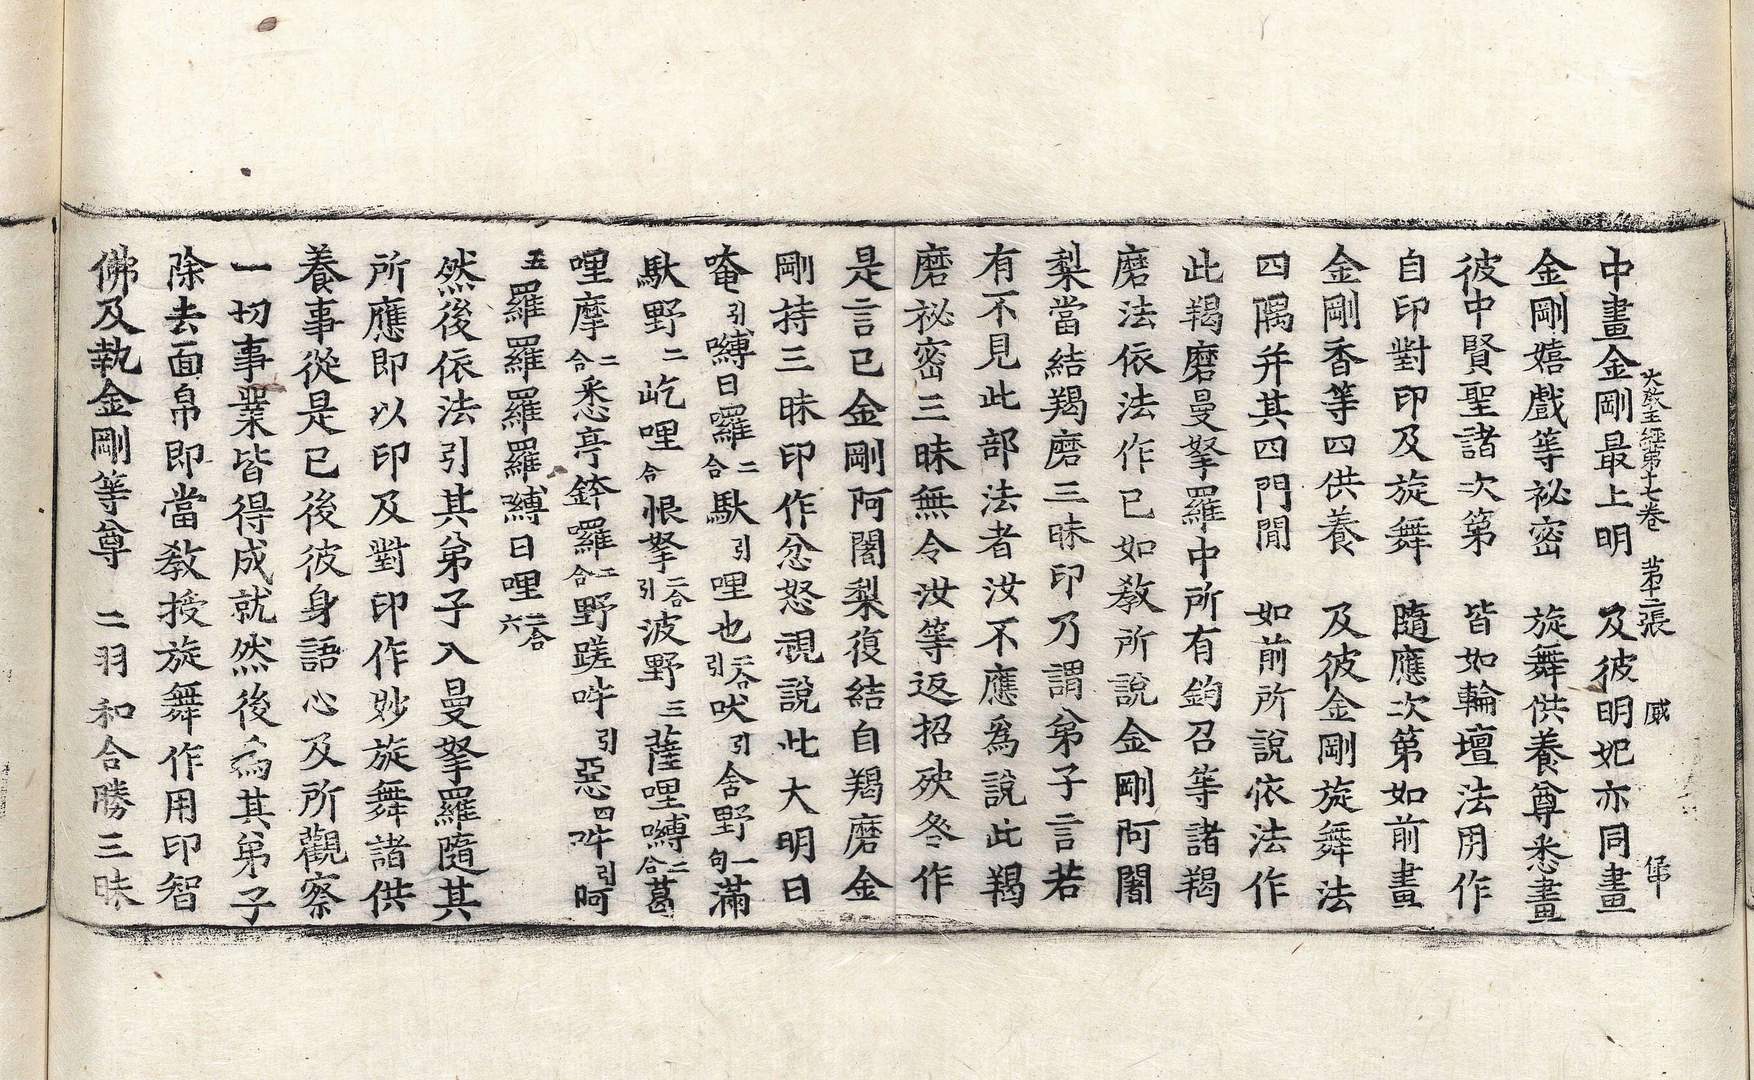 大敎王經第十七卷　第二張　咸　俤
中畫金剛最上明　及彼明妃亦同畫
金剛嬉戲等祕密　旋舞供養尊悉畫
彼中賢聖諸次第　皆如輪壇法用作
自印對印及旋舞　隨應次第如前畫
金剛香等四供養　及彼金剛旋舞法
四隅并其四門閒　如前所說依法作
此羯磨曼拏羅中所有鉤召等諸羯
磨法依法作已如敎所說金剛阿闍
梨當結羯磨三昧印乃謂弟子言若
有不見此部法者汝不應爲說此羯
磨祕密三昧無令汝等返招殃咎作
是言已金剛阿闍梨復結自羯磨金
剛持三昧印作忿怒視說此大明曰
唵引嚩日囉二合馱引哩也二合引吠引舍野一句滿
馱野二屹哩合恨拏二合引波野三薩哩嚩二合葛
哩摩二合悉亭鉢囉二合野蹉吽引惡四吽引呵
五羅羅羅羅嚩日哩二合六
然後依法引其弟子入曼拏羅隨其
所應即以印及對印作妙旋舞諸供
養事從是已後彼身語心及所觀察
一切事業皆得成就然後爲其弟子
除去面帛即當敎授旋舞作用印智
佛及執金剛等尊　二羽和合勝三昧